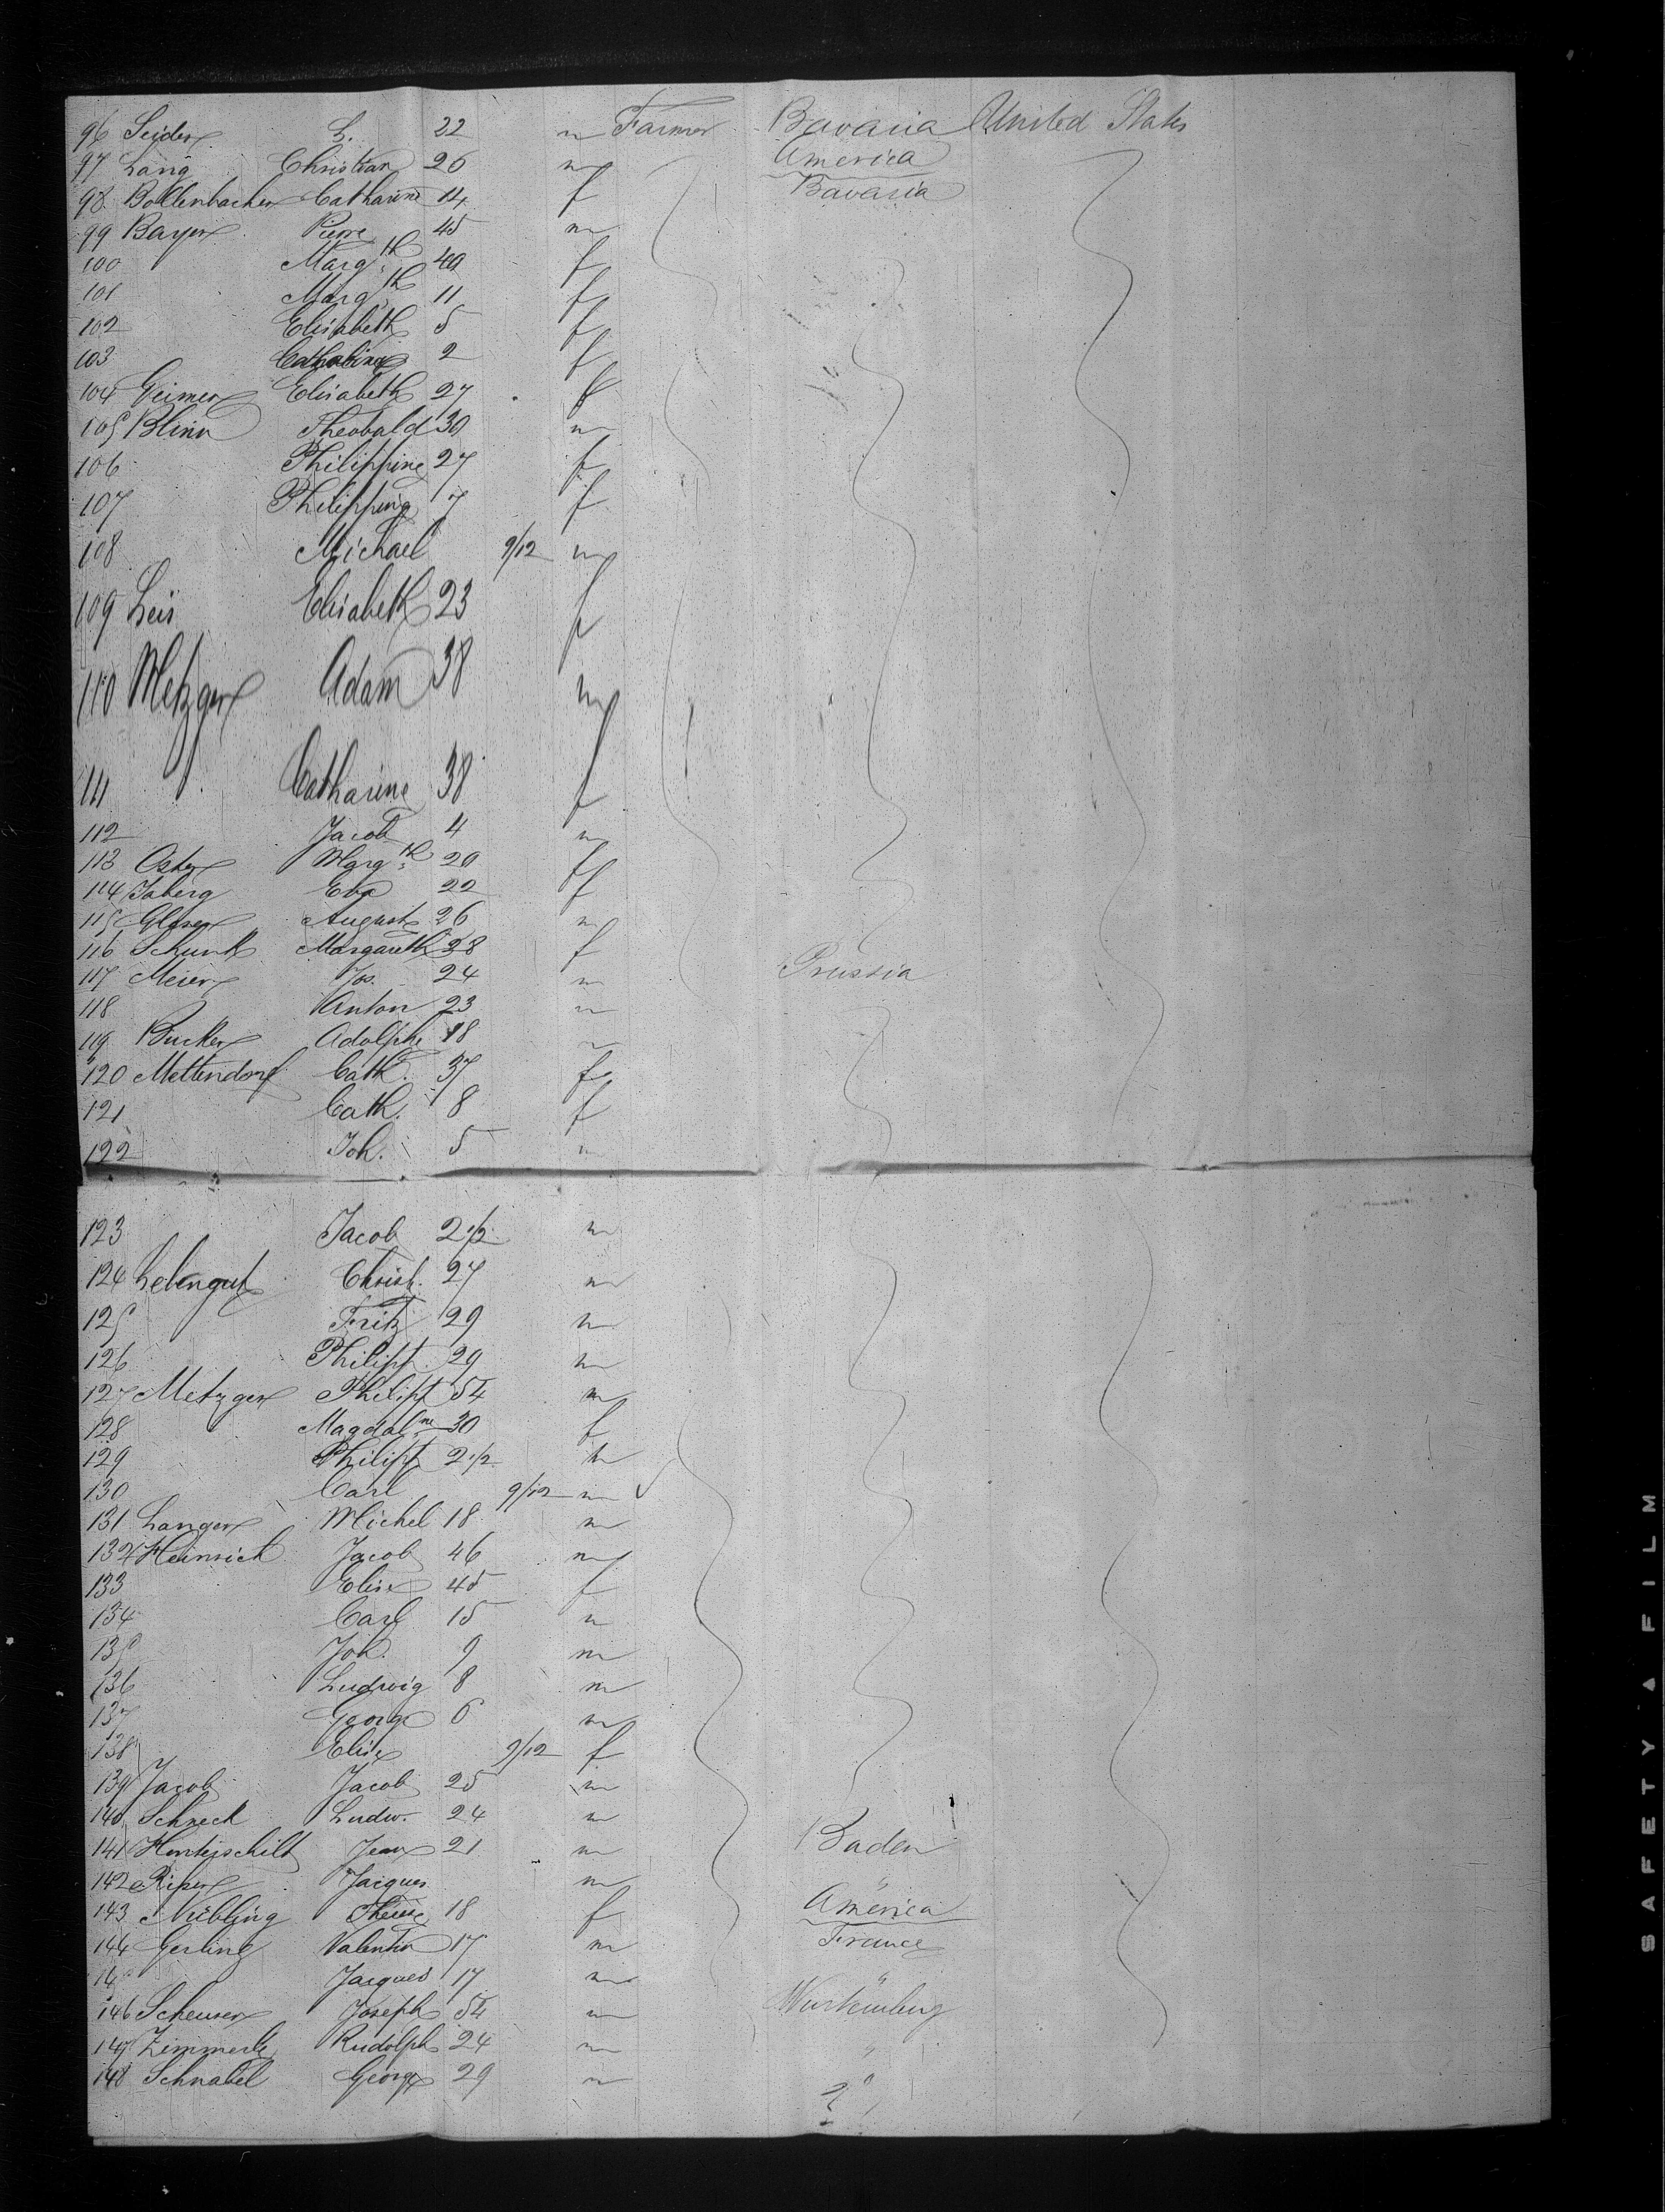 96 Seider L. 22 m Farmer Bavaria United States
97 Lang Christian 26 m America
98 Bollenbacher Catharine 14 f Bavaria
99 Bayer Pierre 45 m
100 Marg.th 40 f
101 Marg.th 11 f
102 Elisabeth 5 f
103 2 f
104 Geimer Elisabeth 27 f
105 Blinn Theobald 30 m
106 Philippine 27 f
107 Philippine 7 f
108 Michael 9/12 m
109 Leis Elisabeth 23 f
110 Metzger Adam 38 m
111 Catharine 38 f
112 Jacob 4 m
113 Oster Marg.th 20 f
114 Isberg Eva 22 f
115 Glaser August 26 m
116 Schunk Margareth 28 f
117 Meier Jos. 24 m Prussia
118 Anton 23 m
119 Bucker Adolphe 18 m
120 Mettendorf Cath. 37 f
121 Cath. 8 f
122 Joh. 5 m
123 Jacob 2 1/2 m
124 Lebengut Christ. 27 m
125 Fritz 29 m
126 Philipp. 29 m
127 Metzger Philipp 54 m
128 Magdal.ne 30 f
129 Philipp 2 1/2 m
130 Carl 9/12 m
131 Langer Michel 18 m
132 Heinrich Jacob 46 m
133 Elise 45 f
134 Carl 15 m
135 Joh. 9 m
136 Ludwig 8 m
137 George 6 m
138 Elise 9/12 f
139 Jacob Jacob 25 m
140 Schneck Ludw. 24 m
141 Hunterschilt Jean 21 m Baden
142 Riper Jacques m "
143 Nübling Therese 18 f America
144 Gerling Valentin 17 m France
14 Jacques 17 m "
146 Scheuser Joseph 54 m Wurtemberg
147 Zimmerle Rudolph 24 m "
148 Schnabel George 29 m
SAFETY ▲ FILM